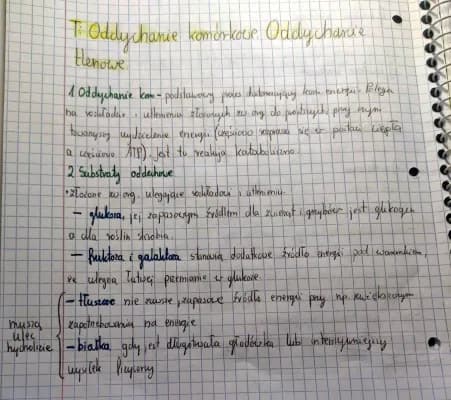 T: Oddychanie komórkowe. Oddychanie
tlenowe.
1. Oddychanie kom - podstawowy proces dostarczający kom. energii. Polega
na rozkładzie i utlenieniu złożonych zw. org. do prostszych, przy czym
towarzyszy wydzielenie energii (częściowo rozprasza się w postaci ciepła
a częściowo ATP). Jest to reakcja kataboliczna.
2 Substraty oddechowe
• złożone zw. org. ulegające rozkładowi i utlenieniu.
- glukoza, jej zapasowym źródłem dla zwierząt i grzybów jest glikogen
a dla roślin skrobia.
- fruktoza i galaktoza stanowią dodatkowe źródło energii pod warunkiem,
że ulegną łatwej przemianie w glukozę.
muszą
ulec
hydrolizie
- tłuszcze nie zawsze, zapasowe źródło energii przy np. zwiększonym
zapotrzebowaniu na energię
- białka gdy jest długotrwała głodówka lub intensywniejszy
wysiłek fizyczny